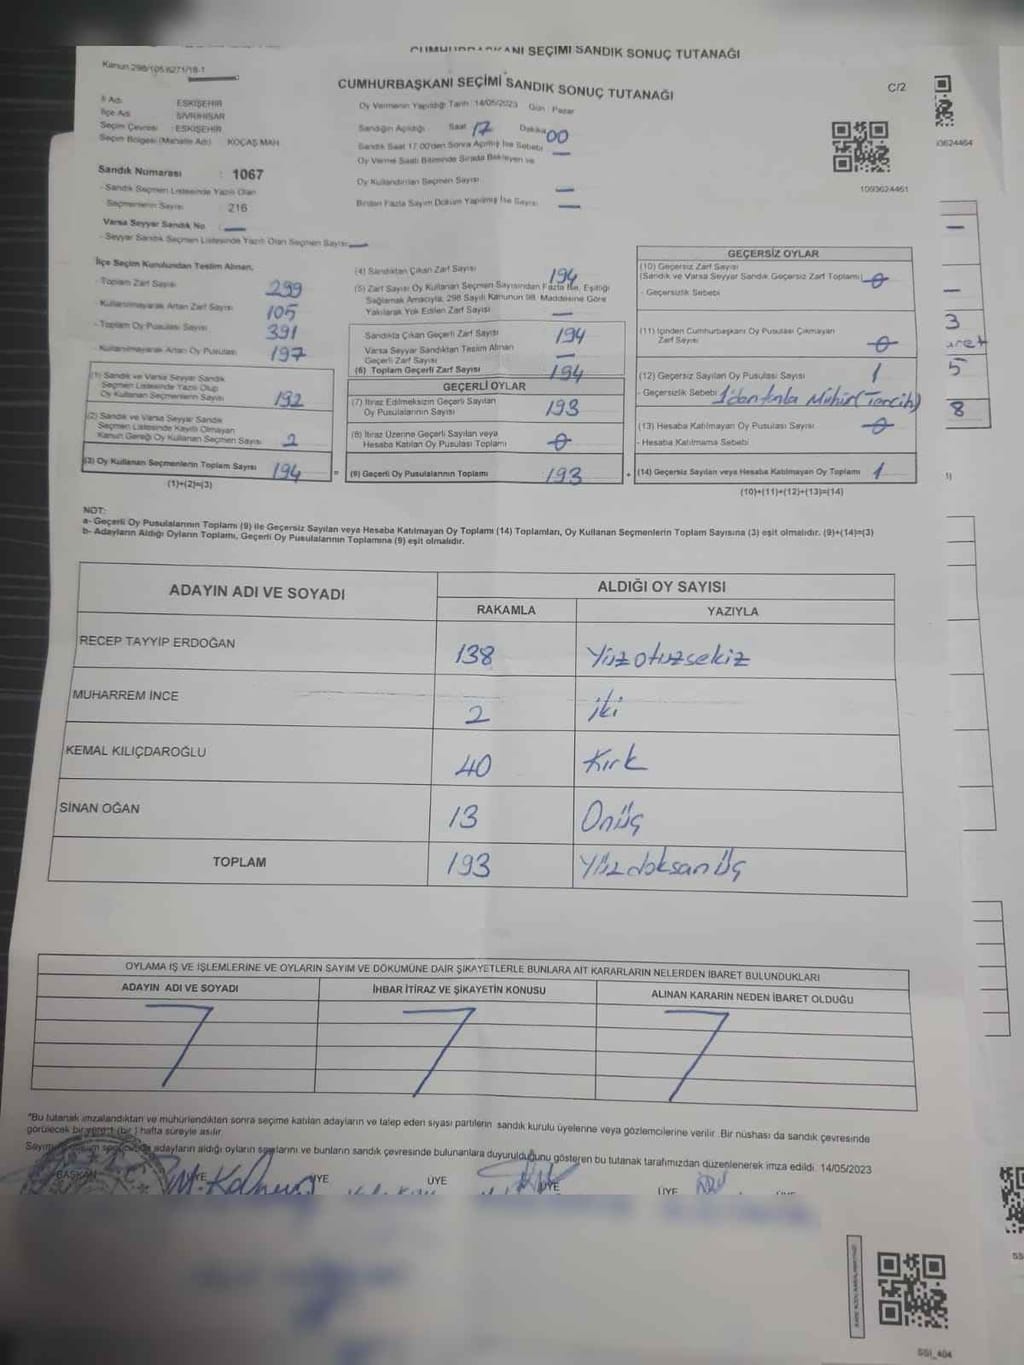 CUMHURBAŞKANI SEÇİMİ SANDIK SONUÇ TUTANAĞI
Kanun:298/105,6271/18-1
CUMHURBAŞKANI SEÇİMİ SANDIK SONUÇ TUTANAĞI
C/2
İl Adı : ESKİŞEHİR
İlçe Adı : SİVRİHİSAR
Seçim Çevresi : ESKİŞEHİR
Seçim Bölgesi (Mahalle Adı) : KOÇAŞ MAH
Oy Vermenin Yapıldığı Tarih :14/05/2023 Gün : Pazar
Sandığın Açıldığı : Saat 17 Dakika 00
Sandık Saat 17.00'den Sonra Açılmış İse Sebebi —
Oy Verme Saati Bitiminde Sırada Bekleyen ve
Oy Kullandırılan Seçmen Sayısı —
Birden Fazla Sayım Döküm Yapılmış İse Sayısı —
1093624461
Sandık Numarası : 1067
- Sandık Seçmen Listesinde Yazılı Olan
Seçmenlerin Sayısı 216
Varsa Seyyar Sandık No —
- Seyyar Sandık Seçmen Listesinde Yazılı Olan Seçmen Sayısı —
İlçe Seçim Kurulundan Teslim Alınan,
- Toplam Zarf Sayısı 299
- Kullanılmayarak Artan Zarf Sayısı 105
- Toplam Oy Pusulası Sayısı 391
- Kullanılmayarak Artan Oy Pusulası 197
(1) Sandık ve Varsa Seyyar Sandık
Seçmen Listesinde Yazılı Olup
Oy Kullanan Seçmenlerin Sayısı 192
(2) Sandık ve Varsa Seyyar Sandık
Seçmen Listesinde Kayıtlı Olmayan
Kanun Gereği Oy Kullanan Seçmen Sayısı 2
(3) Oy Kullanan Seçmenlerin Toplam Sayısı 194
(1)+(2)=(3)
(4) Sandıktan Çıkan Zarf Sayısı 194
(5) Zarf Sayısı Oy Kullanan Seçmen Sayısından Fazla İse, Eşitliği
Sağlamak Amacıyla, 298 Sayılı Kanunun 98. Maddesine Göre
Yakılarak Yok Edilen Zarf Sayısı —
Sandıkta Çıkan Geçerli Zarf Sayısı 194
Varsa Seyyar Sandıktan Teslim Alınan
Geçerli Zarf Sayısı —
(6) Toplam Geçerli Zarf Sayısı 194
GEÇERLİ OYLAR
(7) İtiraz Edilmeksizin Geçerli Sayılan
Oy Pusulalarının Sayısı 193
(8) İtiraz Üzerine Geçerli Sayılan veya
Hesaba Katılan Oy Pusulası Toplamı 0
(9) Geçerli Oy Pusulalarının Toplamı 193
GEÇERSİZ OYLAR
(10) Geçersiz Zarf Sayısı
(Sandık ve Varsa Seyyar Sandık Geçersiz Zarf Toplamı) 0
- Geçersizlik Sebebi
(11) İçinden Cumhurbaşkanı Oy Pusulası Çıkmayan
Zarf Sayısı 0
(12) Geçersiz Sayılan Oy Pusulası Sayısı 1
- Geçersizlik Sebebi 1'den fazla Mühür (Tercih)
(13) Hesaba Katılmayan Oy Pusulası Sayısı 0
- Hesaba Katılmama Sebebi
(14) Geçersiz Sayılan veya Hesaba Katılmayan Oy Toplamı 1
(10)+(11)+(12)+(13)=(14)
3
5
8
NOT:
a- Geçerli Oy Pusulalarının Toplamı (9) ile Geçersiz Sayılan veya Hesaba Katılmayan Oy Toplamı (14) Toplamları, Oy Kullanan Seçmenlerin Toplam Sayısına (3) eşit olmalıdır. (9)+(14)=(3)
b- Adayların Aldığı Oyların Toplamı, Geçerli Oy Pusulalarının Toplamına (9) eşit olmalıdır.
ADAYIN ADI VE SOYADI ALDIĞI OY SAYISI
RAKAMLA YAZIYLA
RECEP TAYYİP ERDOĞAN 138 Yüzotuzsekiz
MUHARREM İNCE 2 iki
KEMAL KILIÇDAROĞLU 40 Kırk
SİNAN OĞAN 13 Onüç
TOPLAM 193 Yüzdoksanüç
OYLAMA İŞ VE İŞLEMLERİNE VE OYLARIN SAYIM VE DÖKÜMÜNE DAİR ŞİKAYETLERLE BUNLARA AİT KARARLARIN NELERDEN İBARET BULUNDUKLARI
ADAYIN ADI VE SOYADI İHBAR İTİRAZ VE ŞİKAYETİN KONUSU ALINAN KARARIN NEDEN İBARET OLDUĞU
*Bu tutanak imzalandıktan ve mühürlendikten sonra seçime katılan adayların ve talep eden siyasi partilerin sandık kurulu üyelerine veya gözlemcilerine verilir. Bir nüshası da sandık çevresinde
görülecek bir yere 1 (bir ) hafta süreyle asılır.
adayların aldığı oyların sayılarını ve bunların sandık çevresinde bulunanlara duyurulduğunu gösteren bu tutanak tarafımızdan düzenlenerek imza edildi. 14/05/2023
BAŞKAN ÜYE ÜYE ÜYE ÜYE ÜYE
SSI_404